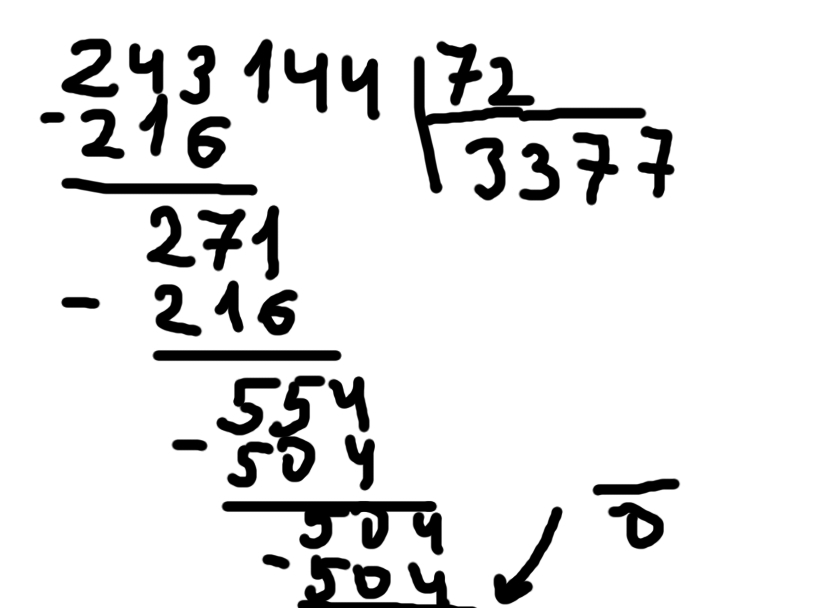 243144 72
-216 3377
271
- 216
554
- 504
504
- 504
0